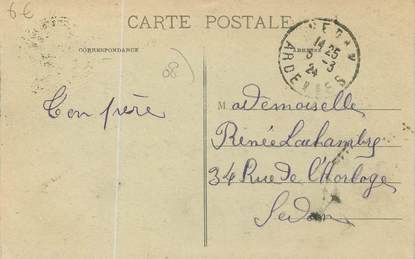 6€
CARTE POSTALE
CORRESPONDANCE
ADRESSE
SEDAN
14 25
5 -3
24
ARDENNES
08
Ton frère
Mademoiselle
Renée
34 Rue de l'Horloge
Sedan